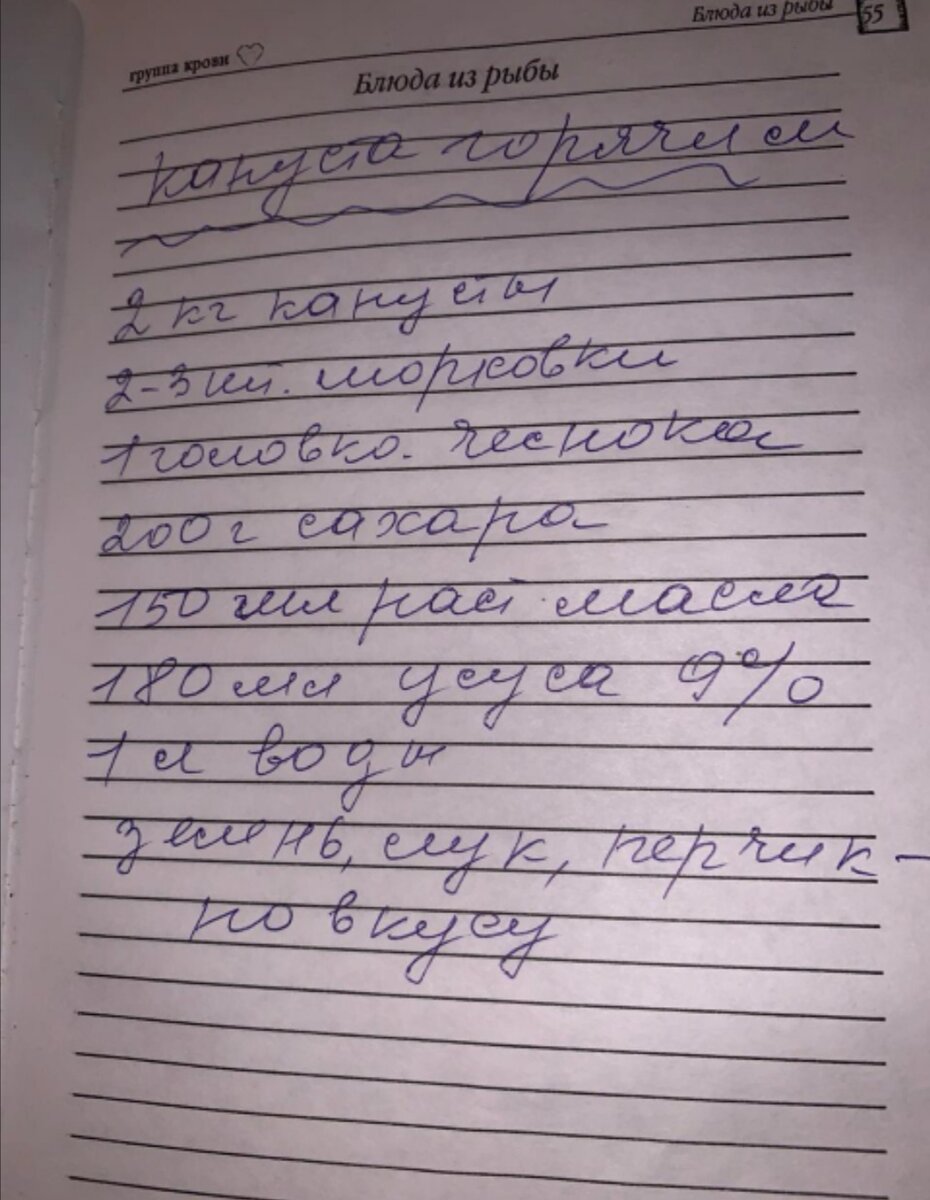 Блюда из рыбы 55
группа крови
Блюда из рыбы
капуста горячим
2 кг капусты
2-3 шт. морковки
1 головка. чеснока
200 г сахара
150 мл раст. масла
180 мл уксуса 9%
1 л воды
зелень, лук, перчик -
по вкусу